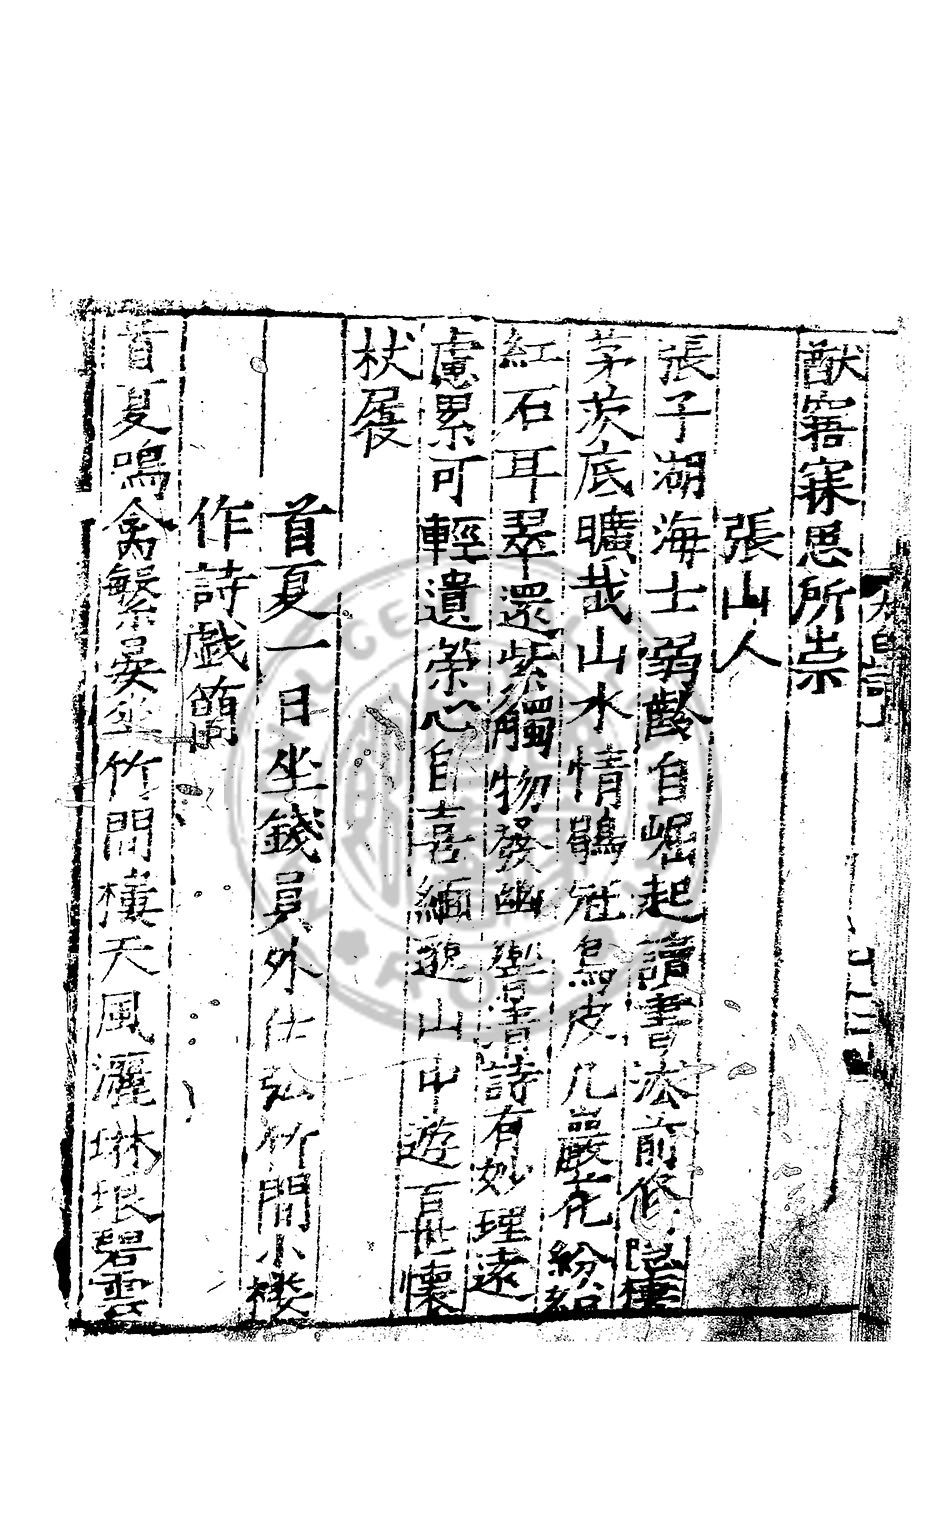 猷寤寐思所崇
張山人
張子湖海士弱齡自崛起讀書法前修隱棲
茅茨底曠哉山水情鶡冠烏皮几巖花紛紛
紅石耳翠還紫觸物發幽響清詩有妙理遠
慮累可輕遺榮心自喜緬邈山中遊百年懷
杖屨
首夏一日坐錢員外仕弘竹間小樓
作詩戯簡
首夏鳴禽繁晏坐竹間棲天風灑琳琅碧雲